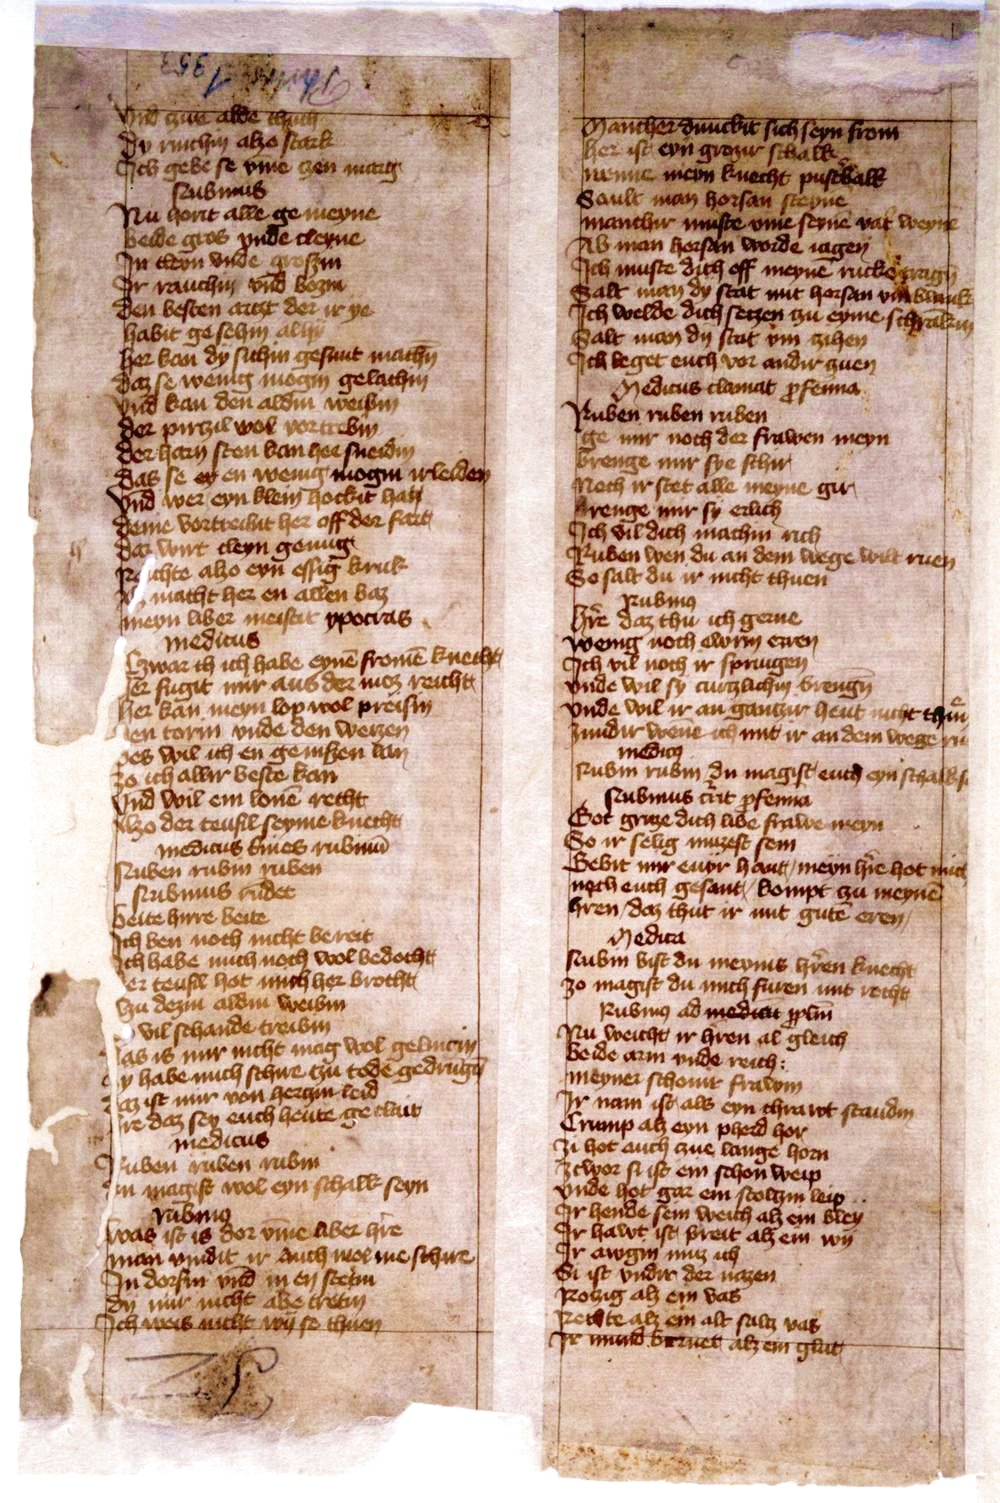 Vnd czwe albe thuch
Dy ruchin alzo stark
Ich gebe se vme czen marg
Rubinus
Nu horit alle gemeyne
beide gros vnde cleyne
In cleyn vnde groszin
Ir rauchin vnd bozin
den besten artzt der ir ye
habit gesehin alhy
her kan dy sichin gesunt machin
daz se wenig mogin gelachin
vnd kan den aldin weibin
der purczil wol vortreibin
der harn sten kan her sneidin
das se ey en wenig mogin irleiden
Vnd wer eyn klein hockit hat
deme vortreibit her off der fart
daz wirt cleyn genug
rechte alzo eyn essig kruk
macht her en allen baz
meyn liber meistir ypocras
medicus
Czwar ich ich habe eynē fromē knecht
Her fugit mir aus der moz reicht
her kan meyn lop wol preisin
den torin vnde den weizen
des wil ich en genissen lan
zo ich allir beste kan
Vnd wil em lonē recht
Alzo der teufil seyme knecht
medicus
Ruben rubin ruben
Rubinus rūdet
beite hirre beite
Ich ben noch nicht bereit
Ich habe mich noch wol bedocht
der teufil hot mich her brocht
Czu dezin aldin weibin
vil schande treibin
das is mir nicht mag wol gelincin
sy habe mich schire tzu tode gedrūgē
daz ist mir von herczin leid
hre daz sey euch heute geclait
medicus
Ruben ruben rubin
du magist wol eyn schalk seyn
rubinus
was ist is dor vme liber hre
man vindit ir auch wol me schire
In dorfin vnd in en stetin
dy mir nicht abe tretin
Ich weis nicht wy se thuen
Mancher dunckit sich seyn from
her ist eyn grozir schalk
nenne meyn knecht pusterbalk
Sault man horsan steyne
manchir muste vme seyne vat weyne
Ab man horsan worde iagen
Ich muste dich off meynē rucke tragin
Salt man dy stat mit horsan
Ich welde dich setzen tzu eyme schrankin
Salt man dy stat vm zihen
Ich leget euch vor andir zuen
Medicus clamat pro serua
Ruben ruben ruben
ge mir noch der frawen meyn
brenge mir sye schir
Noch ir stet alle meyne gir
brenge mir sy erlich
Ich wil dich machin rich
Ruben wen du an dem wege wilt ruen
So salt du ir nicht thuen
Rubinus
Hre daz thu ich gerne
wenig noch ewrin eren
Ich wil noch ir springen
vnde wil sy curtzlichin brengen
vnde wil ir an gantzir heut nicht thun
Sundir wene ich mit ir an dem wege
medicus
Rubin rubin du magist euch eyn schalk
Rubinus
Got gruze dich libe frawe meyn
So ir selig muzest sein
Gebit mir euwr hant / meyn hre hot mich
noch euch gesant / kompt tzu meynē
hren / daz thut ir mit gutē eren /
Medica
Rubin bist du meynis hren knecht
zo magist du mich furen mit recht
Rubinus ad medicū
Nu weicht ir hren al gleich
beide arm vnde reich :
meyner schonir frawin
Ir nam ist als eyn thrawt staudin
Crump alz eyn pherd hor
zi hot auch czwe lange horn
zcwor si ist ein schon weip
vnde hot gar ein stoltzin leip
Ir hende sein weich alz ein bley
Ir hawt ist breit alz ein wy
Ir awgin
Si ist vndir der nazen
Rotzig alz ein vas
rechte alz ein alt saltz vas
Ir mund brinet alz ein glut